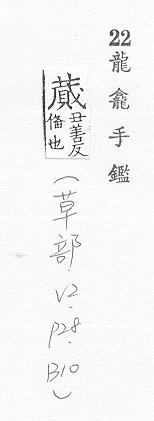 22龍龕手鑑
蕆丑善反
偹也
(草部.V2.P28.B10)